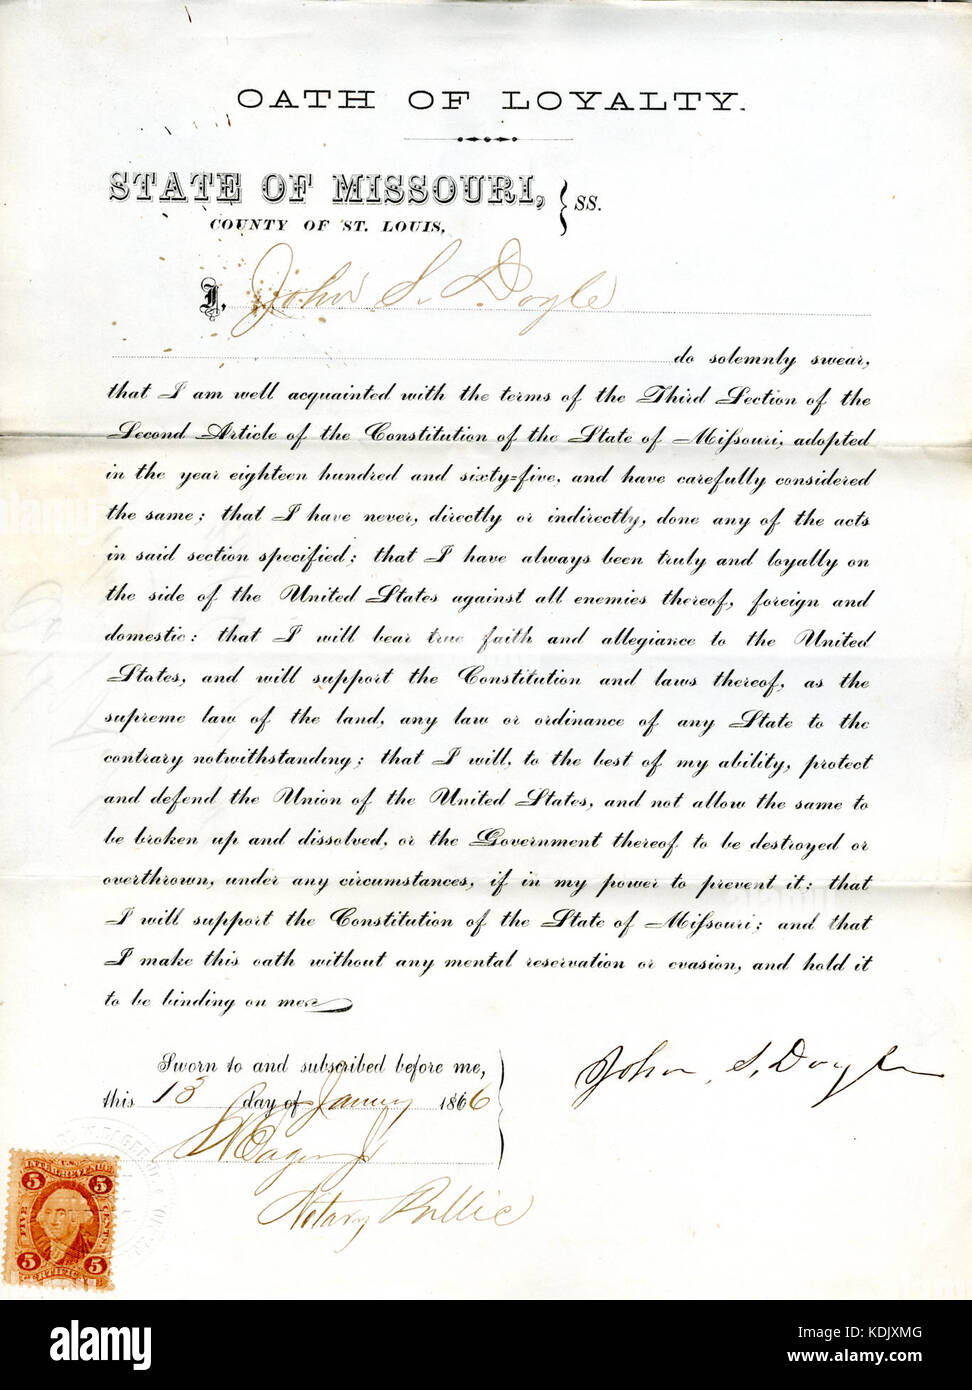 OATH OF LOYALTY.
STATE OF MISSOURI, } SS.
COUNTY OF ST. LOUIS,
I, John S. Doyle
do solemnly swear,
that I am well acquainted with the terms of the Third Section of the
Second Article of the Constitution of the State of Missouri, adopted
in the year eighteen hundred and sixty=five, and have carefully considered
the same; that I have never, directly or indirectly, done any of the acts
in said section specified; that I have always been truly and loyally on
the side of the United States against all enemies thereof, foreign and
domestic: that I will bear true faith and allegiance to the United
States, and will support the Constitution and laws thereof, as the
supreme law of the land, any law or ordinance of any State to the
contrary notwithstanding; that I will, to the best of my ability, protect
and defend the Union of the United States, and not allow the same to
be broken up and dissolved, or the Government thereof to be destroyed or
overthrown, under any circumstances, if in my power to prevent it; that
I will support the Constitution of the State of Missouri; and that
I make this oath without any mental reservation or evasion, and hold it
to be binding on me.
Sworn to and subscribed before me,
this 13 day of January 1866
John S. Doyle
Notary Public
U.S.
INTER. REVENUE
5 5
FIVE CENTS
5 5
CERTIFICATE
alamy
Image ID: KDJXMG
www.alamy.com